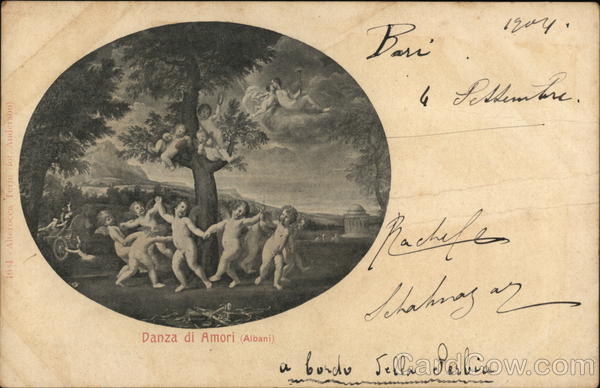 1904.
Bari
4 Settembre.
Rachele
Schahnazar
a bordo della Serbia
Danza di Amori (Albani)
1654 Alterocca Terni (fot. Anderson)
CardCow.com